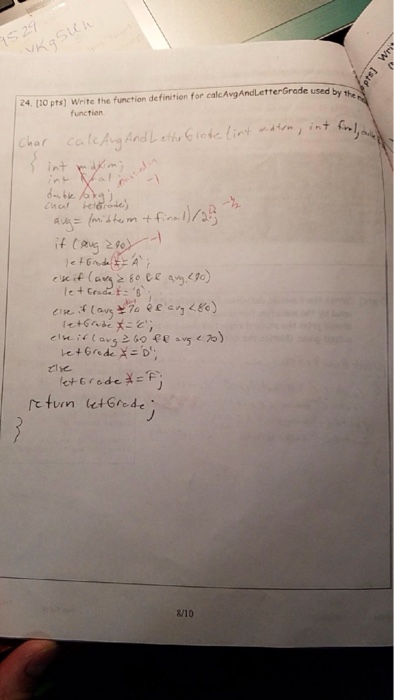 9529
24. [10 pts] Write the function definition for calcAvgAndLetterGrade used by the
function.
pts] Wri
char calcAvgAndLetterGrade (int midterm, int final,
{ int midterm;
int final;
-1
double avg;
char letGrade;
avg = (midterm + final)/2; -½
if (avg ≥ 90) -1
letGrade = 'A';
else if (avg ≥ 80 && avg < 90)
letGrade = 'B';
else if (avg ≥ 70 && avg < 80)
letGrade = 'C';
else if (avg ≥ 60 && avg < 70)
letGrade = 'D';
else
letGrade = 'F';
return letGrade;
}
8/10